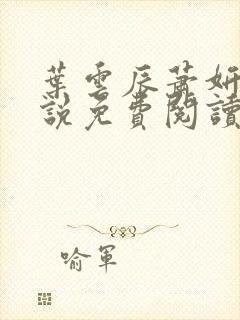 葉雲辰蕭妍
說免費閱讀
喻軍